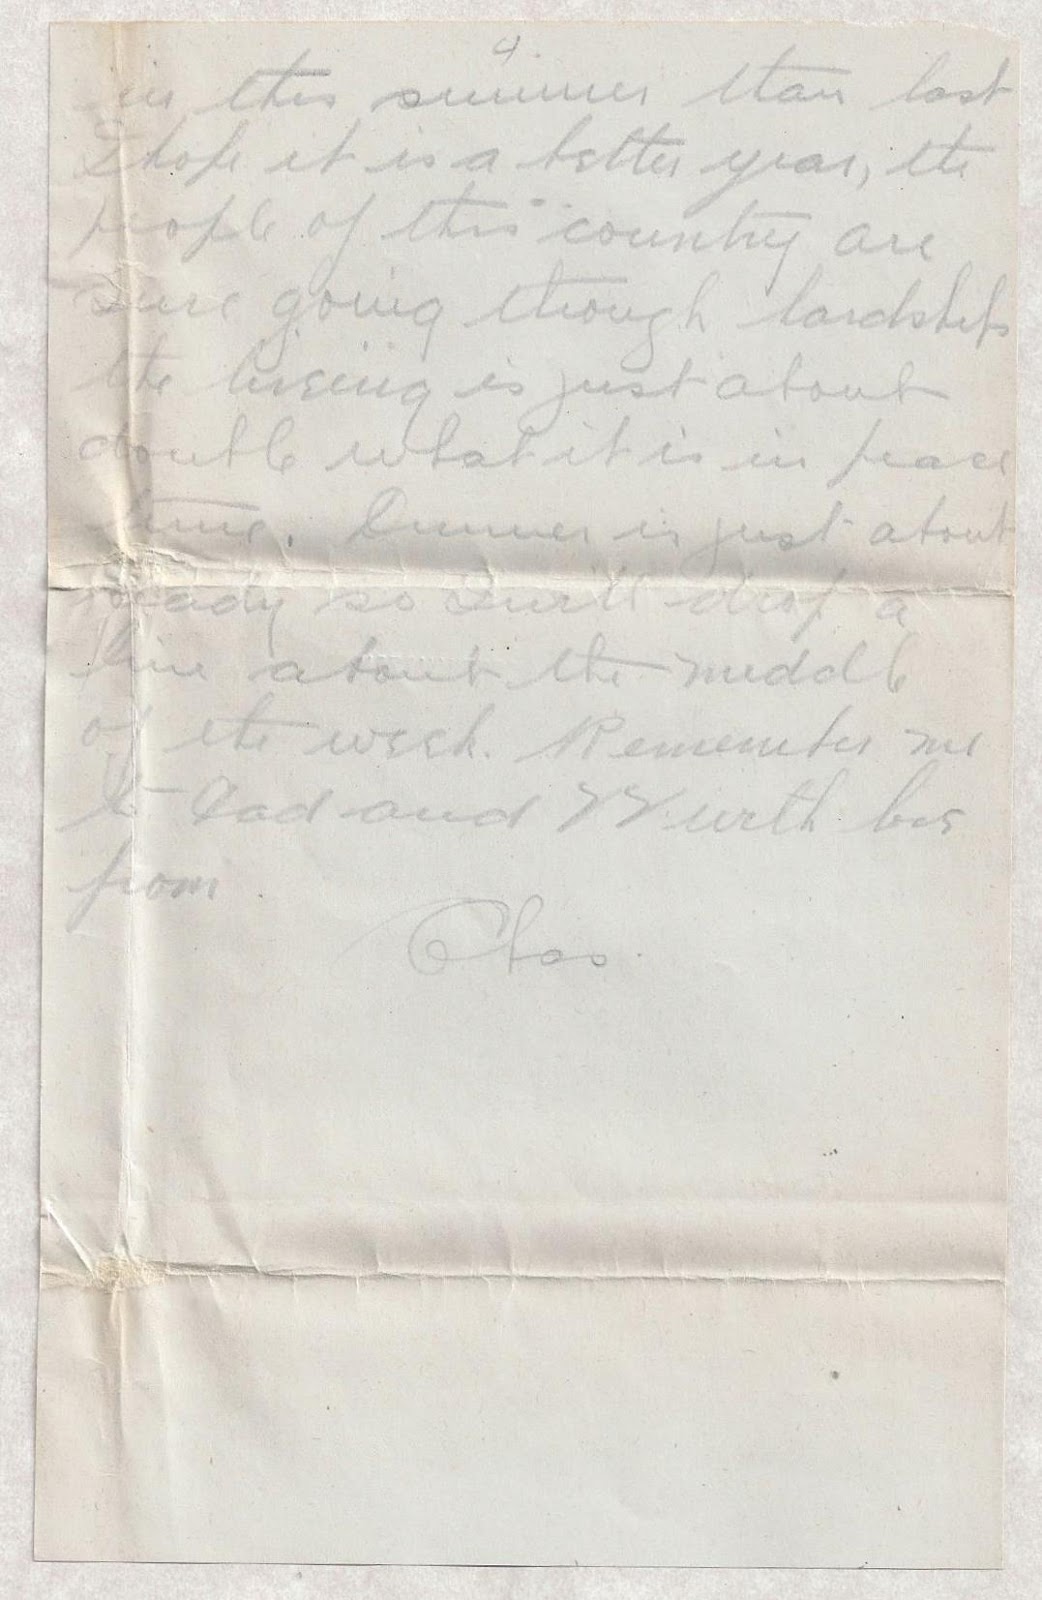 4
in this summer than last
I hope it is a better year, the
people of this country are
sure going though hardships
the living is just about
double what it is in peace
time. Dinner is just about
ready so I will drop a
line about the middle
of the week. Remember me
to Dad and W with love
from
Chas.